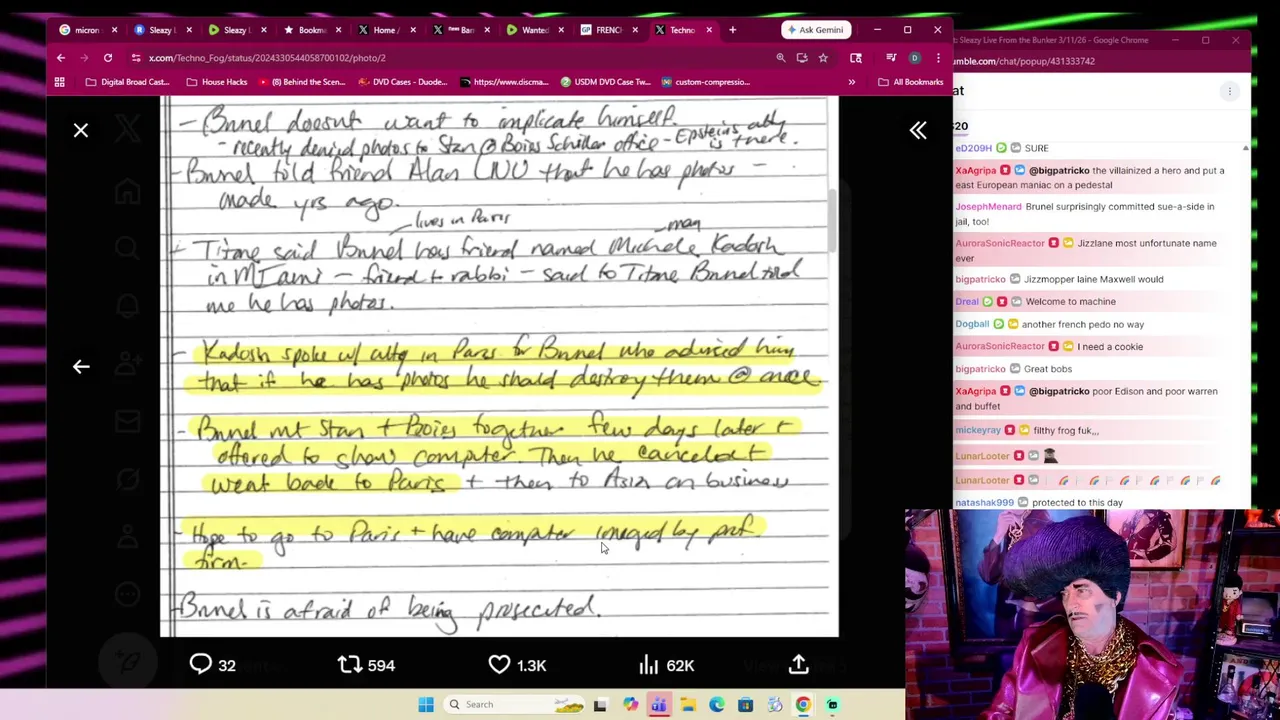 micron
Sleazy L
Sleazy L
Bookma
Home /
Ban
Wanted
FRENC
Techno
Ask Gemini
: Sleazy Live From the Bunker 3/11/26 - Google Chrome
x.com/Techno_Fog/status/2024330544058700102/photo/2
umble.com/chat/popup/431333742
Digital Broad Cast...
House Hacks
(8) Behind the Scen...
DVD Cases - Duode...
https://www.discma...
USDM DVD Case Tw...
custom-compressio...
All Bookmarks
- Brunel doesnt want to implicate himself.
- recently denied photos to Stan @ Boies Schiller office - Epstein's atty is there.
- Brunel told friend Alan LNU that he has photos -
made yrs ago.
lives in Paris
man
Titane said Brunel has friend named Michele Kadosh
in Miami - friend + rabbi - said to Titane Brunel told
me he has photos.
- Kadosh spoke w/ atty in Paris for Brunel who advised him
that if he has photos he should destroy them @ once.
- Brunel mt Stan + Boies together few days later +
offered to show computer. Then he cancelled +
went back to Paris + then to Asia on business
- Hope to go to Paris + have computer imaged by prof.
firm.
- Brunel is afraid of being prosecuted.
32
594
1.3K
62K
Search
at
$20
eD209H SURE
XaAgripa @bigpatricko the villainized a hero and put a
east European maniac on a pedestal
JosephMenard Brunel surprisingly committed sue-a-side in
jail, too!
AuroraSonicReactor Jizzlane most unfortunate name
ever
bigpatricko Jizzmopper laine Maxwell would
Dreal Welcome to machine
Dogball another french pedo no way
AuroraSonicReactor I need a cookie
bigpatricko Great bobs
XaAgripa @bigpatricko poor Edison and poor warren
and buffet
mickeyray filthy frog fuk,,,
LunarLooter
LunarLooter
natashak999 protected to this day